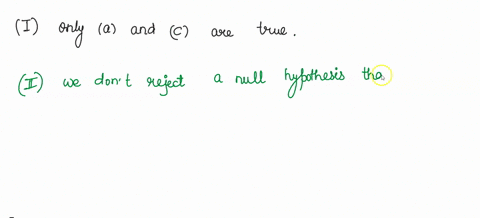 (I) only (a) and (c) are true.
(II) we don't reject a null hypothesis tha